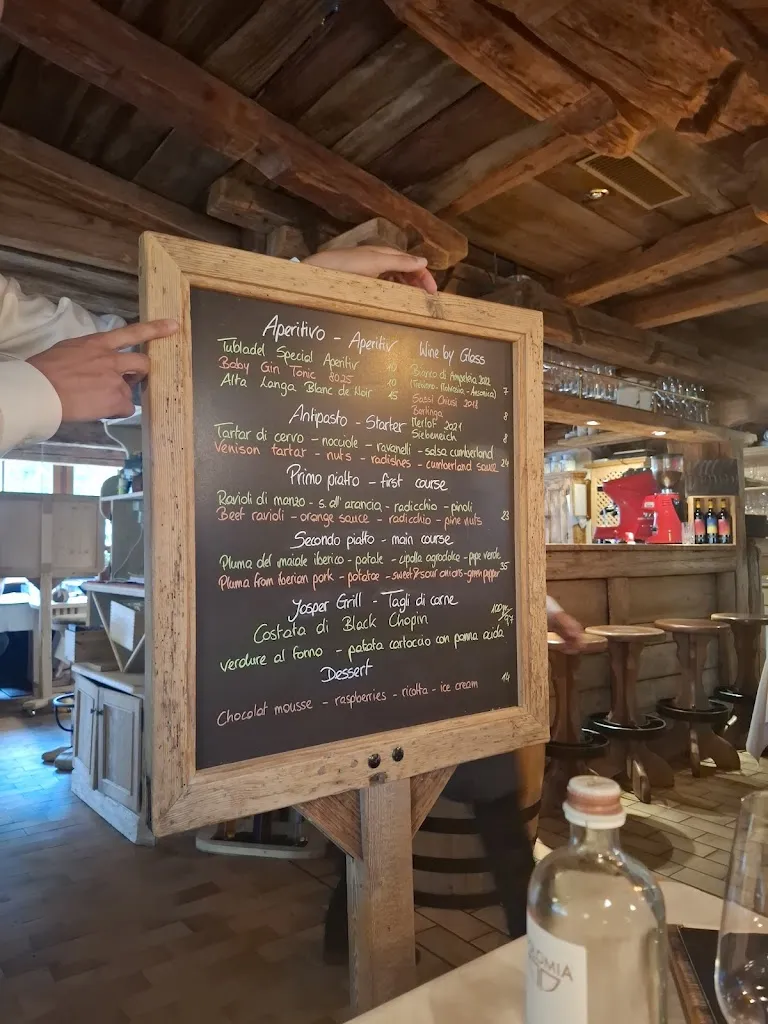 Aperitivo - Aperitiv
Tubladel Special Aperitiv 10
Baby Gin Tonic 2025 10
Alta Langa Blanc de Noir 15
Wine by Glass
Bianco di Ampeleia 2022
7
Sassi Chiusi 2018
Berlinga 8
Merlot 2021
Siebeneich 8
Antipasto - Starter
Tartar di cervo - nocciole - ravanelli - salsa cumberland
Venison tartar - nuts - radishes - cumberland sauce 24
Primo piatto - first course
Ravioli di manzo - s. all' arancia - radicchio - pinoli
Beef ravioli - orange sauce - radicchio - pine nuts 23
Secondo piatto - main course
Pluma del maiale iberico - patate - cipolla agrodolce - pepe verde
Pluma from iberian pork - potatoe - sweet & sour onions - green pepper 35
Josper Grill - Tagli di carne
Costata di Black Chopin 100gr
verdure al forno - patata cartoccio con panna acida
Dessert
Chocolat mousse - raspberries - ricotta - ice cream 14